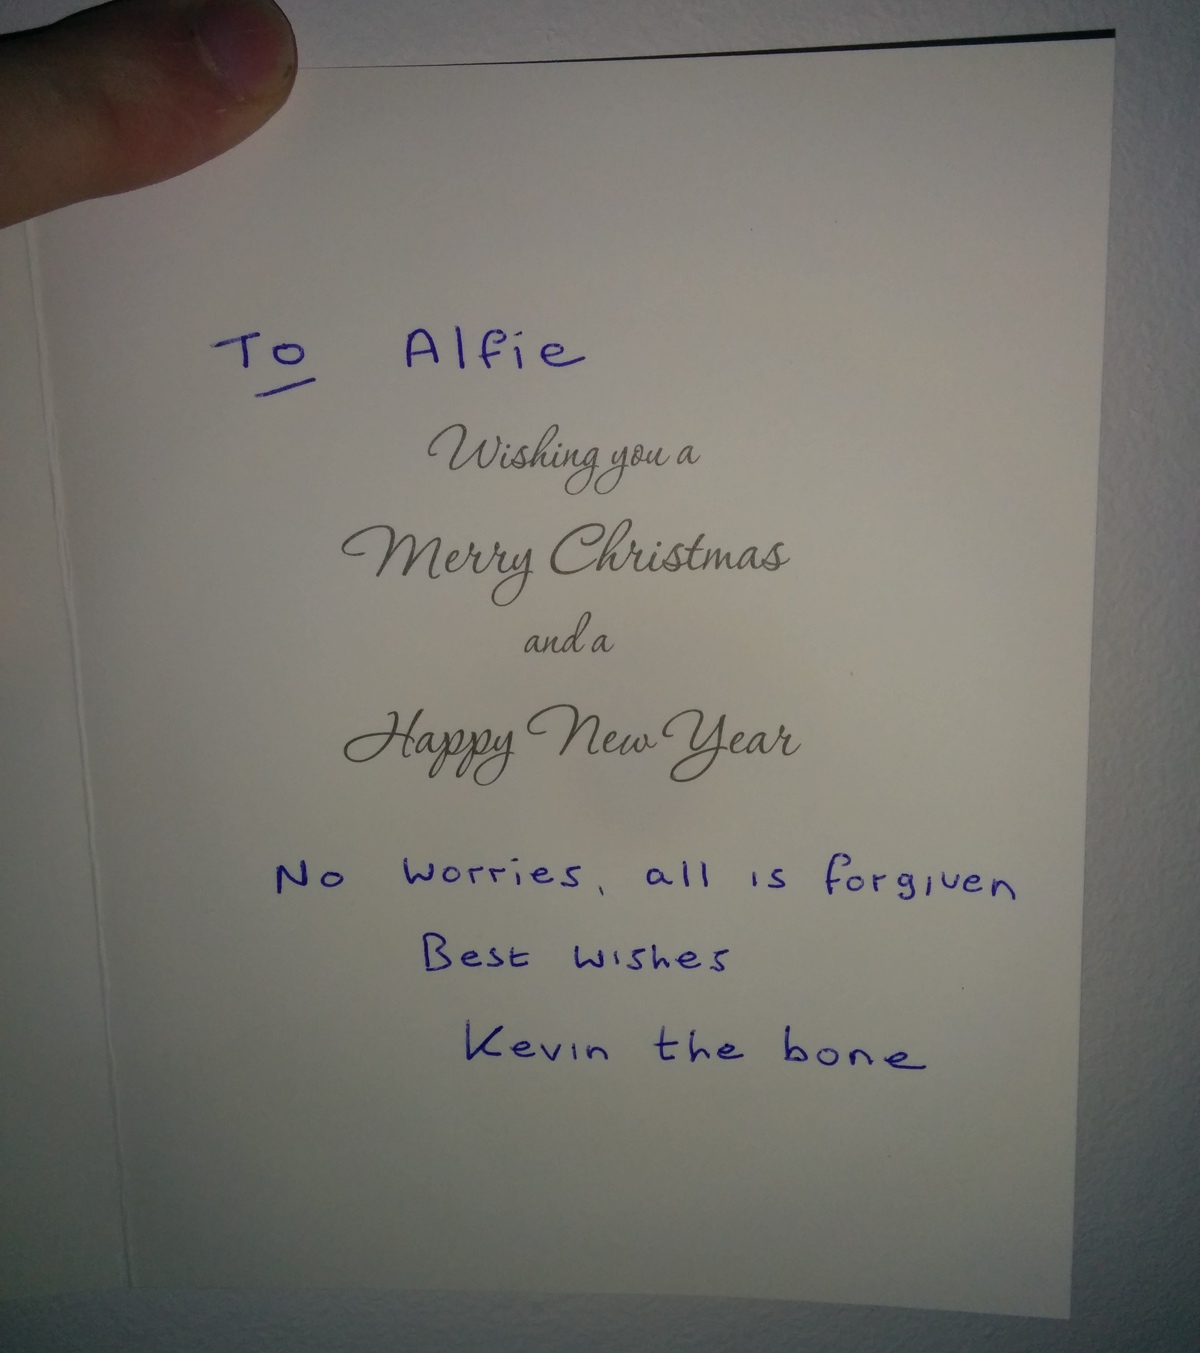 To Alfie
Wishing you a
Merry Christmas
and a
Happy New Year
No worries, all is forgiven
Best wishes
Kevin the bone